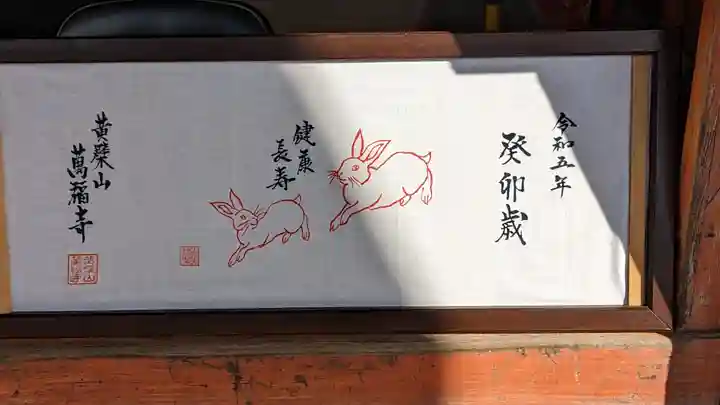 令和五年
癸卯歳
健康
長寿
黄檗山
萬福寺